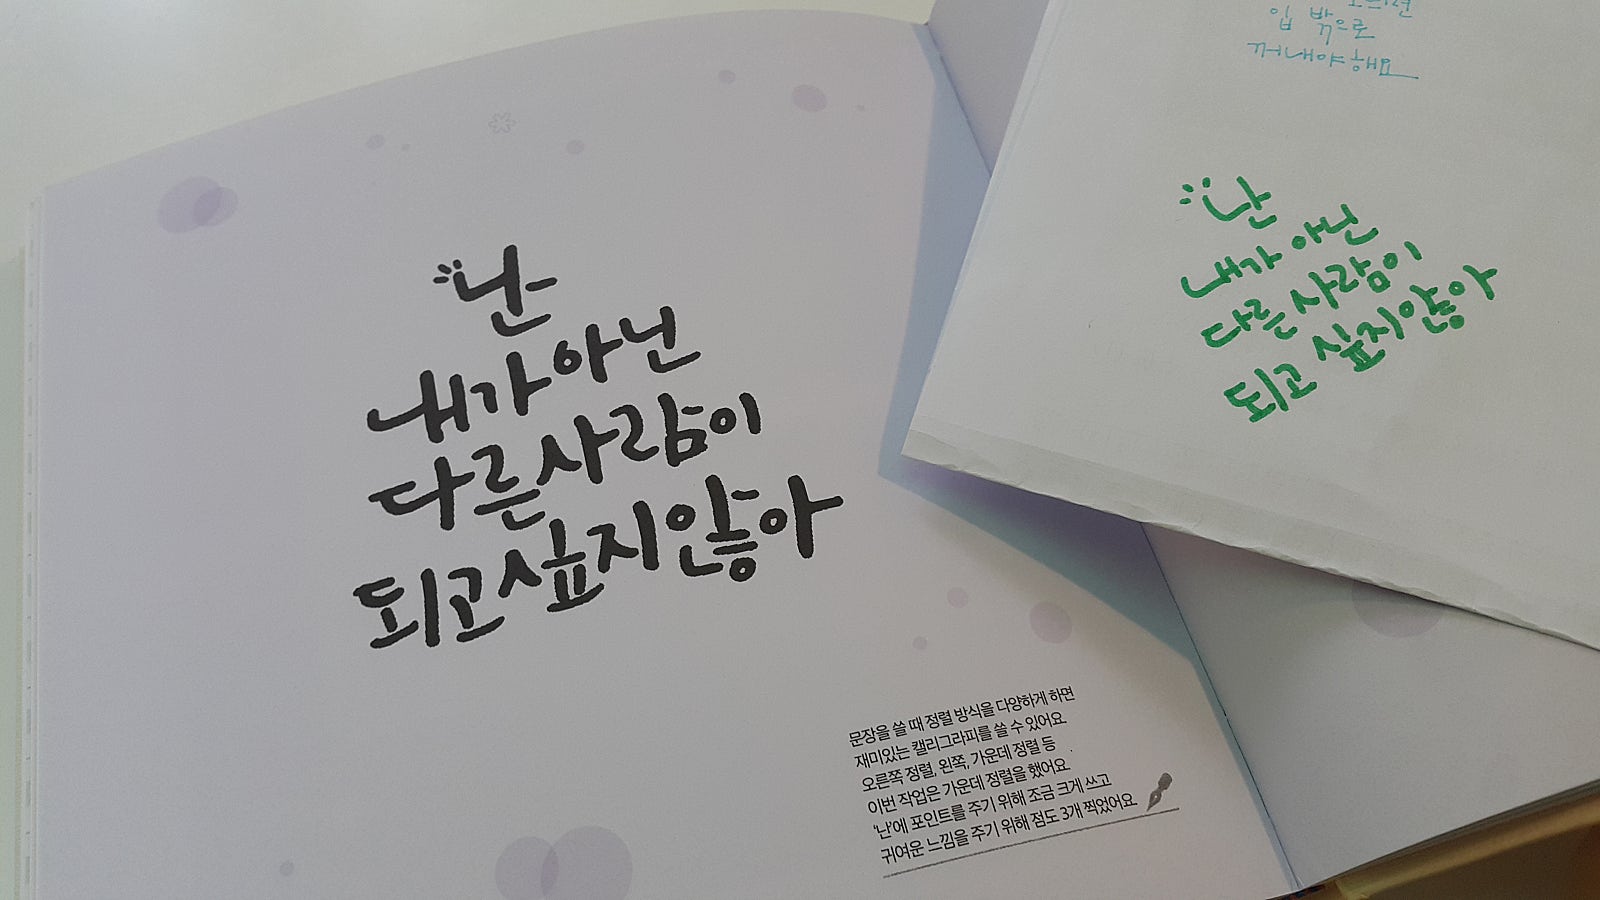 난
내가 아닌
다른 사람이
되고 싶지 않아
문장을 쓸 때 정렬 방식을 다양하게 하면
재미있는 캘리그라피를 쓸 수 있어요.
오른쪽 정렬, 왼쪽, 가운데 정렬 등
이번 작업은 가운데 정렬을 했어요.
'난'에 포인트를 주기 위해 조금 크게 쓰고
귀여운 느낌을 주기 위해 점도 3개 찍었어요.
입 밖으로
꺼내야 해요
난
내가 아닌
다른 사람이
되고 싶지 않아